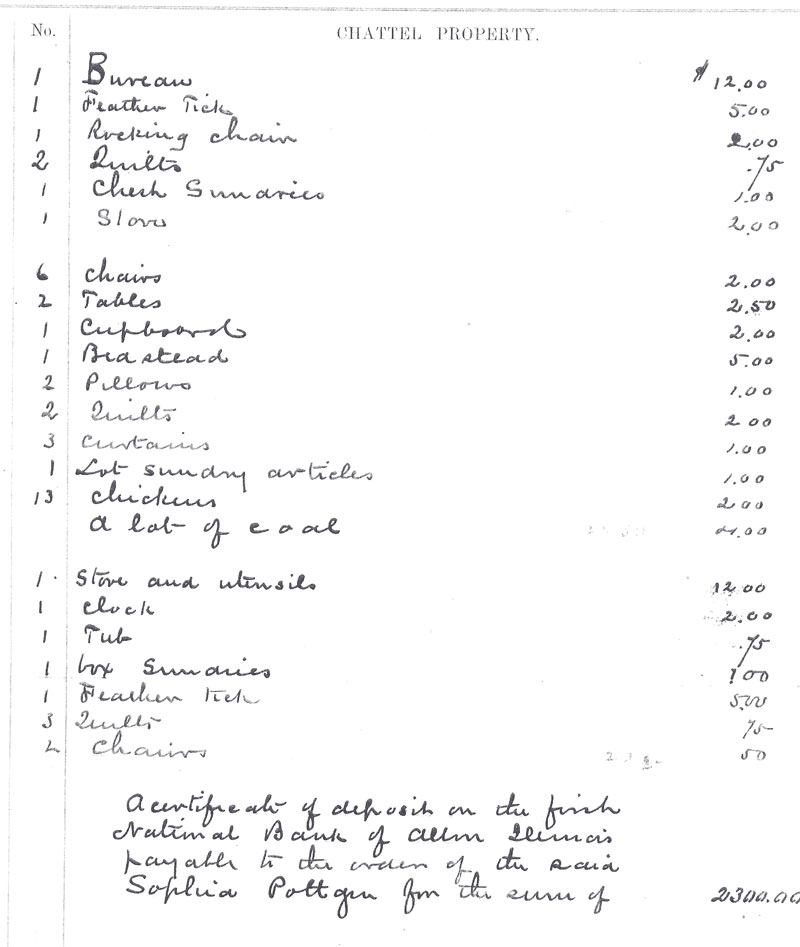 No. CHATTEL PROPERTY.
1 Bureau $ 12.00
1 Feather Tick 5.00
1 Rocking chair 2.00
2 Quilts .75
1 Chest Sundries 1.00
1 Stove 2.00
6 chairs 2.00
2 Tables 2.50
1 Cupboard 2.00
1 Bedstead 5.00
2 Pillows 1.00
2 Quilts 2 00
3 curtains 1.00
1 Lot sundry articles 1.00
13 chickens 2.00
a lot of coal 4.00
1. Stove and utensils 12.00
1 Clock 2.00
1 Tub .75
1 box Sundries 1 00
1 Feather tick 5.00
3 Quilts 75
2 Chairs 50
A certificate of deposit on the first
National Bank of Illinois
payable to the order of the said
Sophia Pottgen for the sum of 2300.00